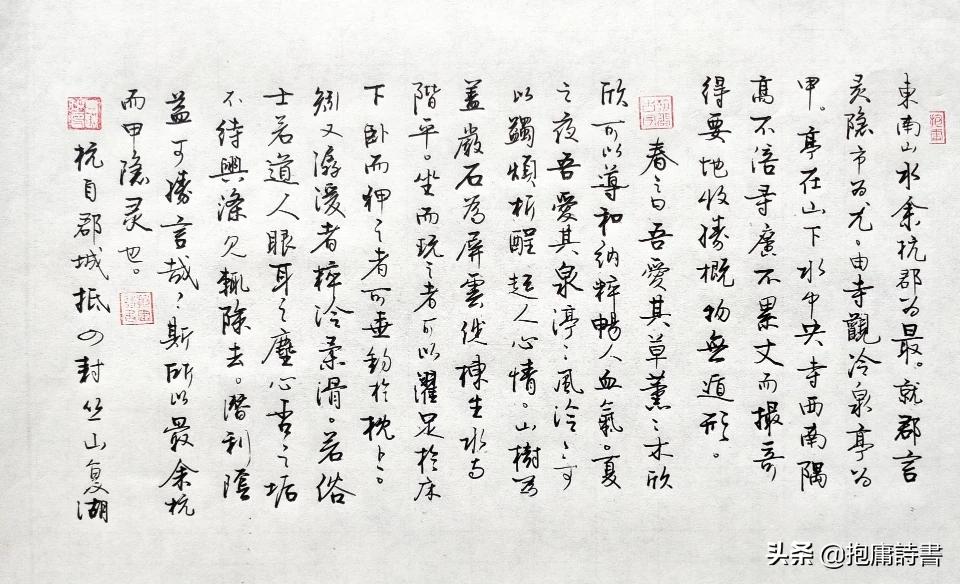 東南山水余杭郡为最。就郡言
灵隐寺为尤。由寺觀冷泉亭为
甲。亭在山下水中央寺西南隅
高不倍寻廣不累丈而撮奇
得要地收勝概物無遁形。
春之日吾愛其草薰〻木欣
欣可以導和納粹暢人血氣。夏
之夜吾愛其泉渟〻風泠〻可
以蠲煩析酲起人心情。山樹为
蓋巖石為屏雲從棟生水与
階平。坐而玩之者可以濯足於床
下卧而狎之者可垂釣於枕上。
矧又潺湲者粹冷柔滑。若俗
士若道人眼耳之塵心舌之垢
不待興滌見輒除去。潜利陰
益可勝言哉〻斯所以最余杭
而甲隐灵也。
杭自郡城抵四封丛山复湖
头条 @抱庸詩書